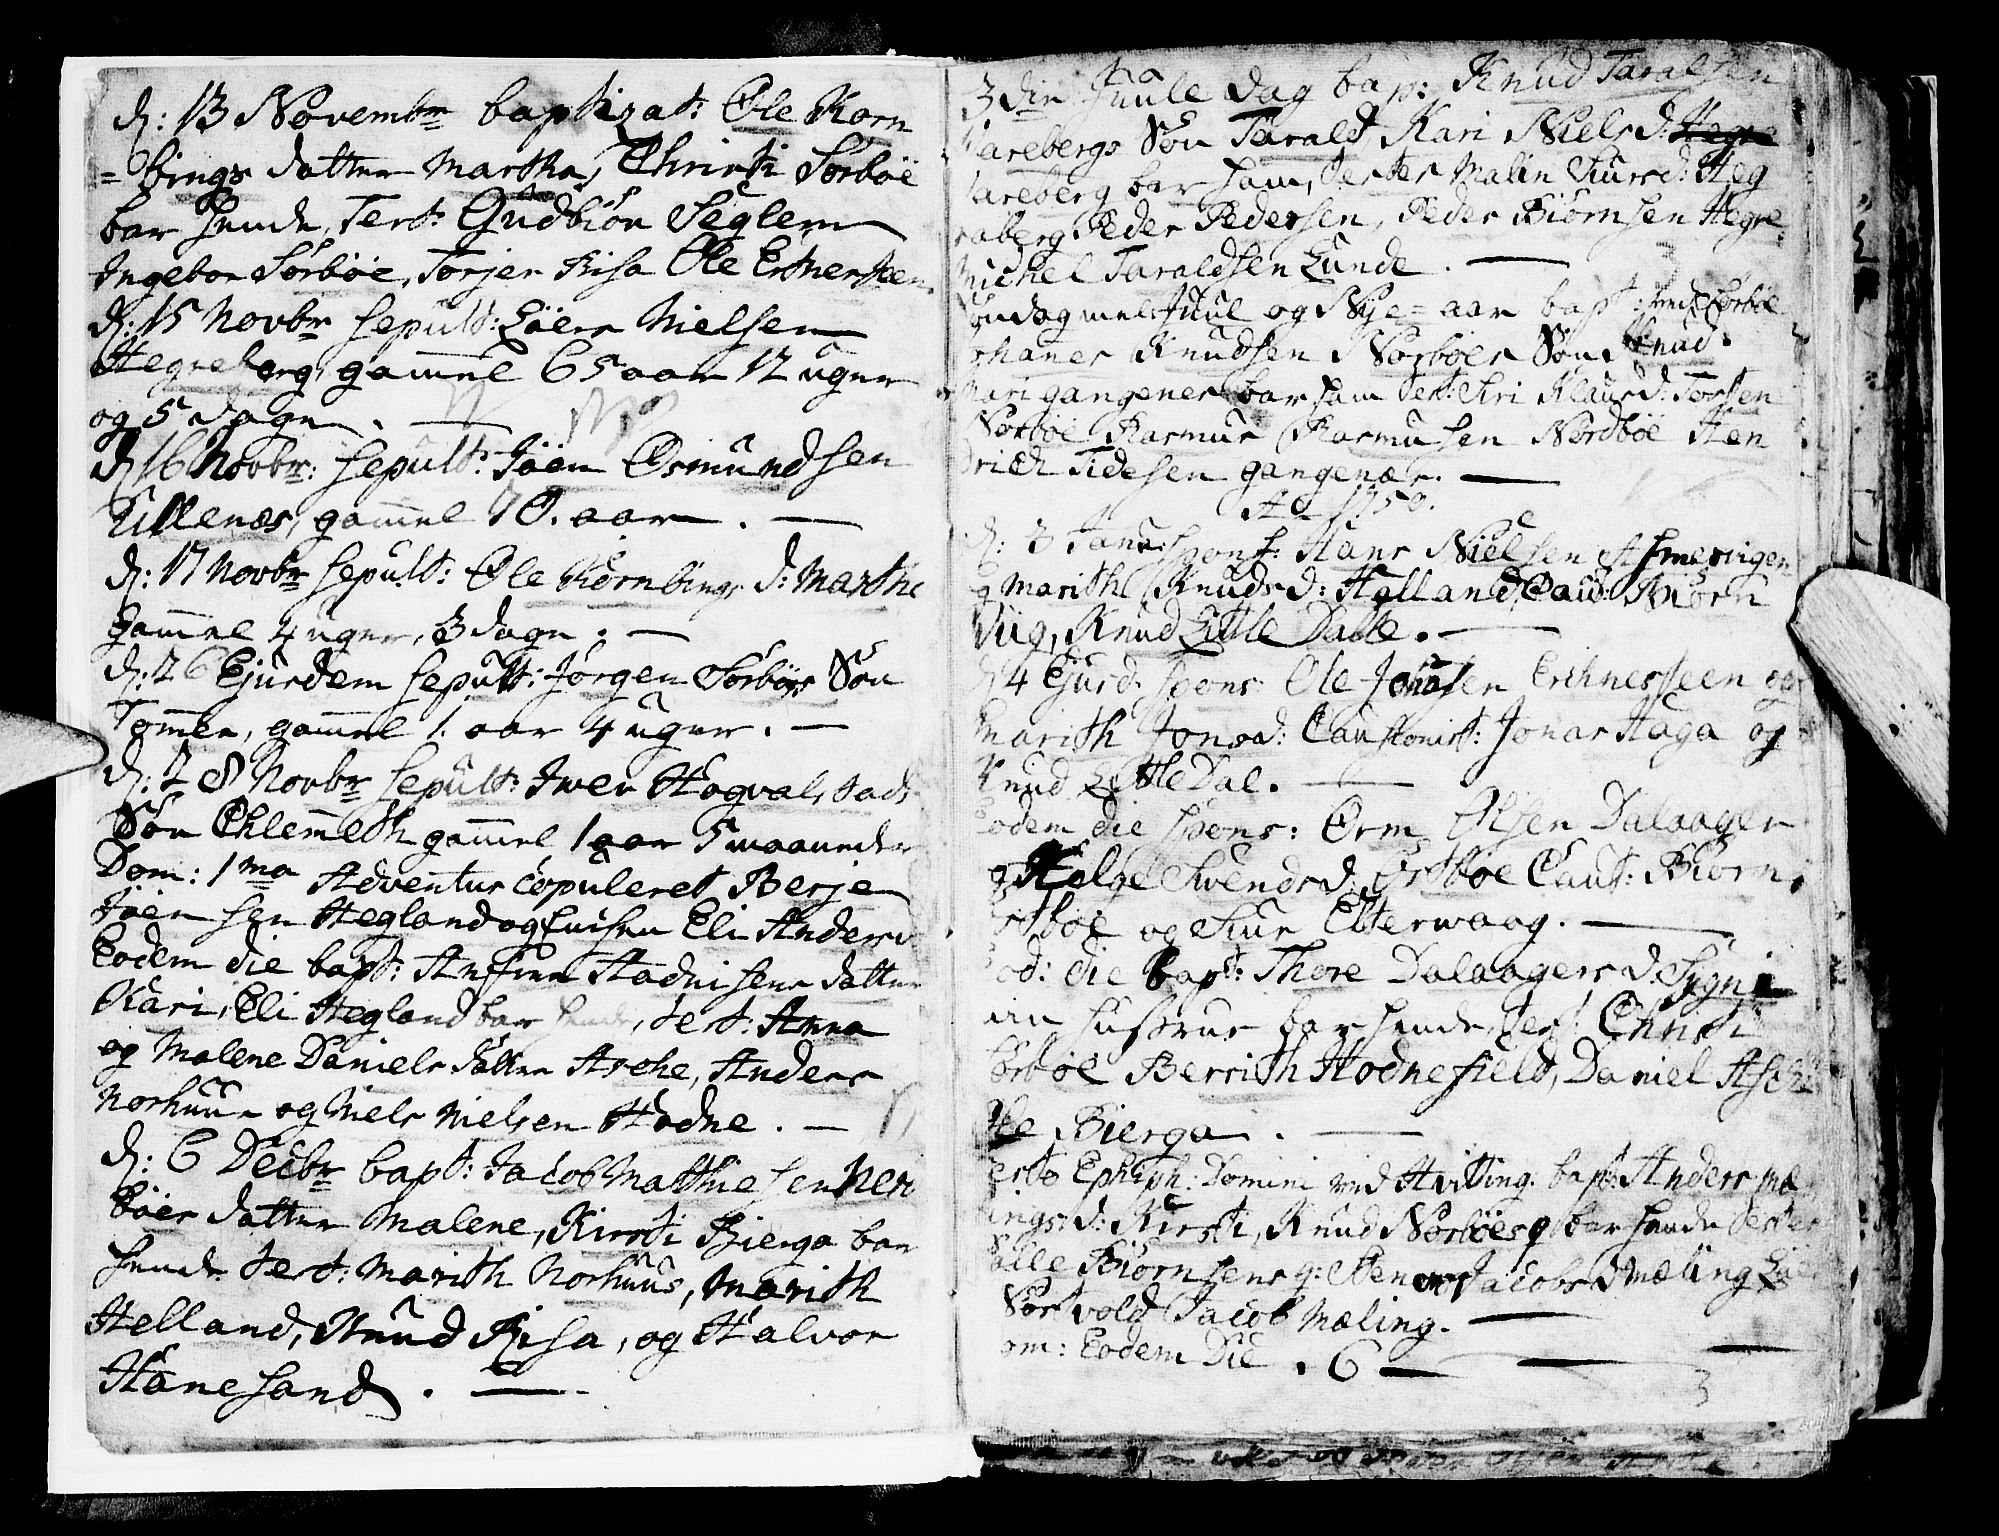 d: 13 Novembr baptizat: Ole Korn
= bings datter Martha, Christi Sørbøe
bar hende, Test: Gudbiør Seglem
Ingebor Sørbøe, Torjer Risa Ole Erxnesteen
d: 15 Novbr sepult: Låers Nielsen
Hegreberg, gammel 65 aar 12 uger
og 5 dage. —
d 16 Novbr: sepult: Joen Osmundsen
Ullenæs, gammel 70. aar. —
d: 17 Novbr sepult: Ole Kornbings d: Marthe
gammel 4 uger, 3 dage. —
d: 26 Ejusdem sepult: Jørgen Sørbøes Søn
Tommer, gammel 1. aar 4 uger. —
d: 28 Novbr sepult: Iver Hogvalstads
Søn Chlemmeth gammel 1 aar 5 maaneder
Dom: 1ma Adventus copuleret Berje
Joensen Hegland og Eli Andersd
Eodem die bapt: Hodnisens datter
Kari, Eli Hegland bar hende, test: Anna
og Malene Daniels datter Aske, Anders
Norhuus og Niels Nielsen Hodne. —
d: 6 Decbr bapt: Jacob Matthiesen Ner
bøes datter Malene, Kirsti Bierga bar
hende test: Marith Norhuus, Marith
Helland, Knud Risa, og Halvor
Hanesand. —
3die Juule dag bap: Knud Taralsen
arebergs Søn Tarald, Kari Nielsd: Hegre
areberg bar ham, testes Malin Siursd: Heg
raberg Peder Pedersen, Peder Biørnsen Hegre
Michel Taraldsen Lunde. —
Søndag mel: Juul og Nye = aar bapt: ved Sørbøe
ohanes Knudsen Norbøes Søn Knud.
Mari gangenes bar ham test: Siri Klausd: Torsen
Norbøe Rasmus Rasmusen Nordbøe Hen
rich Tidesen gangenæs. —
Ao 1750.
d: 3 Janu: spons: Hans Nielsen Asmervigen
g Marith Knudsd: Halland, Caut: Biørn
Viig, Knud Little Dalle. —
d 4 Ejusd. spons: Ole Johnsen Erxnesteen og
Marith Jonsd: Cautionist: Jonas Haga og
Knud Little Dal. —
odem die spons: Orm Olsen Dalaager
g Helge Svendsd: Ørsbøe Caut: Biørn
og Siur Etterwaag. —
od: die bapt: Thore Dalaagers d: Sygni
min hustrue bar hende, test: Christi
ørbøe Berrith Hodnefield, Daniel Ask
Ole Bierga. —
esto Ephiph: Domini ved Hvitting: bapt: Anders mæ
ings d: Kirsti, Knud Norbøes q bar hende testes
alle Biørnsens q: Jacobs d Mæling
Sørtvold, Jacob Mæling. —
om: Eodem Die . 6 —
3